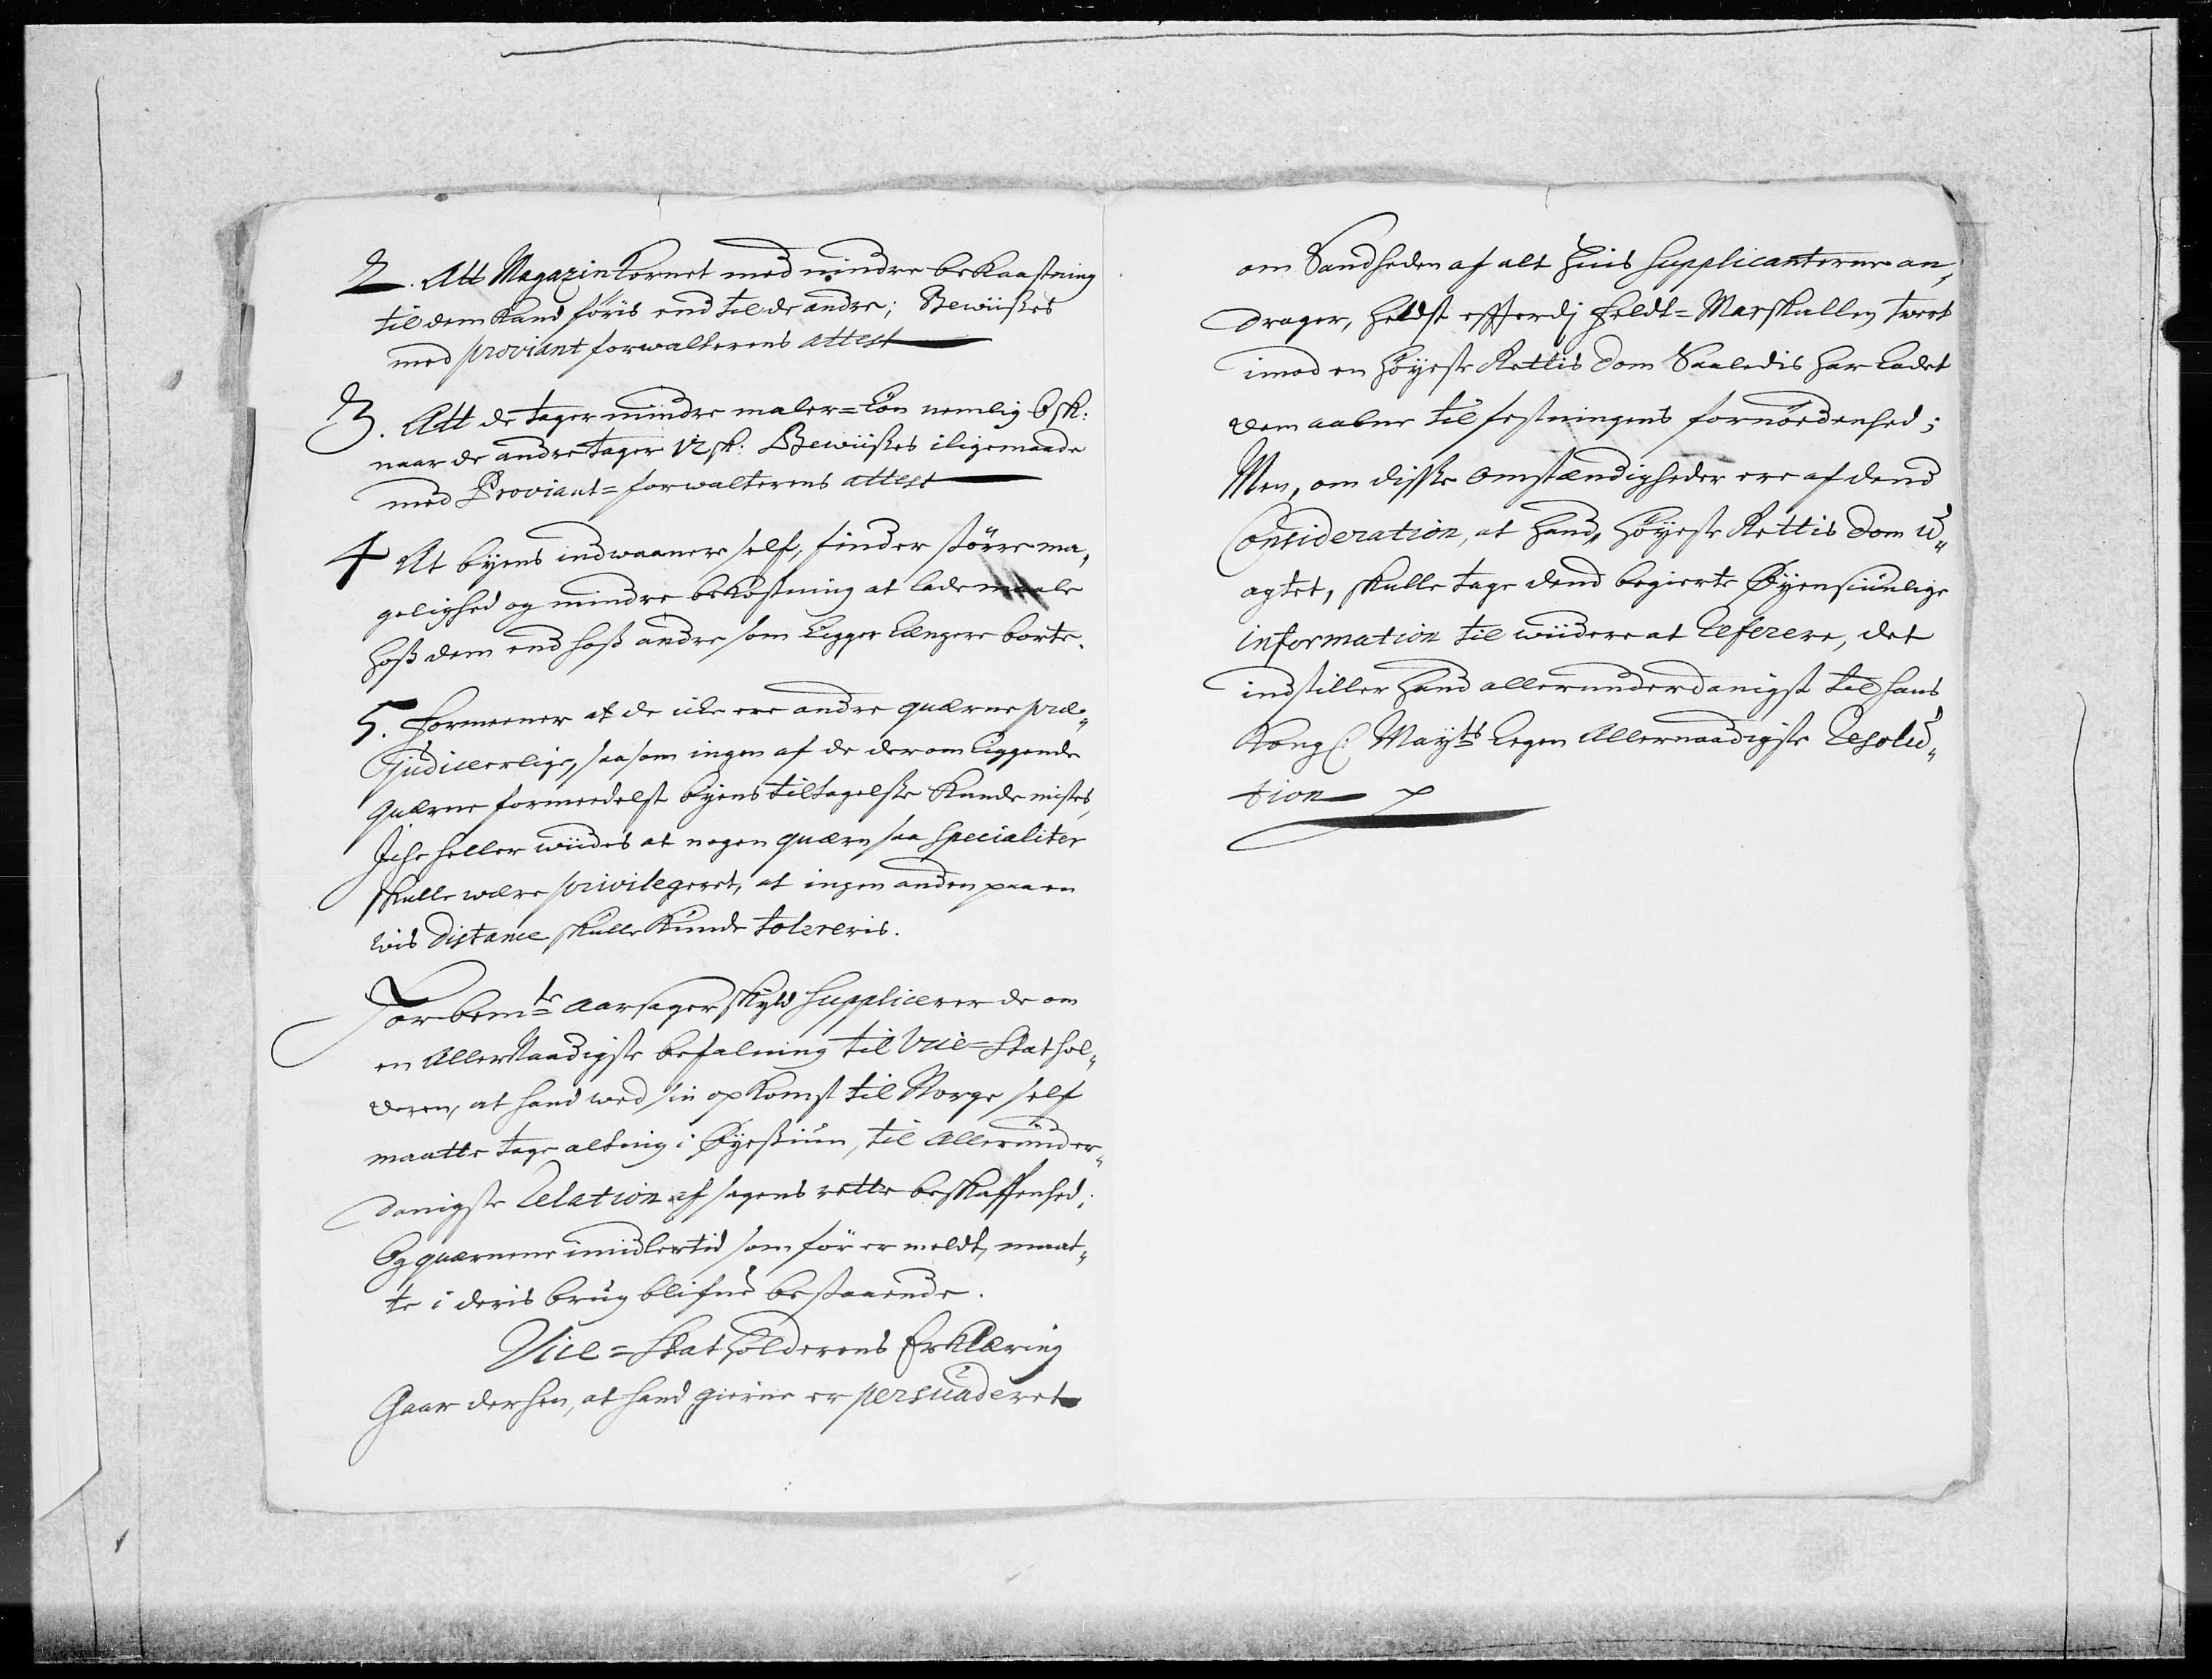 2. Att Magazin Kornet med mindre bekaastning
til dem kand föris end til de andre; Bewiises
med proviant forwalterens attest
3. Att de tager mindre maler=Lön nemlig 6 sk:
naar de andre tager 12 sk: Bewiises iligemaade
med Proviant=forwalterens attest
4 At byens indwaanere self, finder större ma„
gelighed og mindre bekostning at lade maale
hoß dem end hoß andre som ligger længere borte.
5. Formeener at de icke ere andre quærne præ„
judicerlige, saasom ingen af de derom liggende
quærne formedelst byens tiltagelse kunde mistes,
Iche heller wiides at nogen quærn saa Specialiter
skulle wære privilegeret, at ingen anden paa en
wis distance skulle kunde tolereris.
For bemte aarsager skyld Supplicerer de om
en Allernaadigste befalning til Vice=Stathol„
deren, at hand wed sin opkomst til Norge self
maatte tage alting i Øyesiun, til Allerunder„
danigste Relation af sagens rette beskaffenhed;
Og quærnene imidlertid som för er meldt, maat„
te i deris brug blifue bestaaende.
Vice=Statholderens Erklæring
Gaar derhen, at hand gierne er persuaderet
om Sandheden af alt huis Supplicanterne an„
drager, heldst efterdj Feldt=Marskallen twert
imod en höyeste Rettis dom Saaledis har ladet
dem aabne til festningens fornödenhed;
Men, om disse omstændigheder ere af dend
Consideration, at hand, höyeste Rettis dom u„
agtet, skulle tage dend begierte Øyensiunlige
information til wiidere at Referere, det
indstiller hand allerunderdanigst til hans
Kongl: Mayts Egen Allernaadigste Resolu„
tion